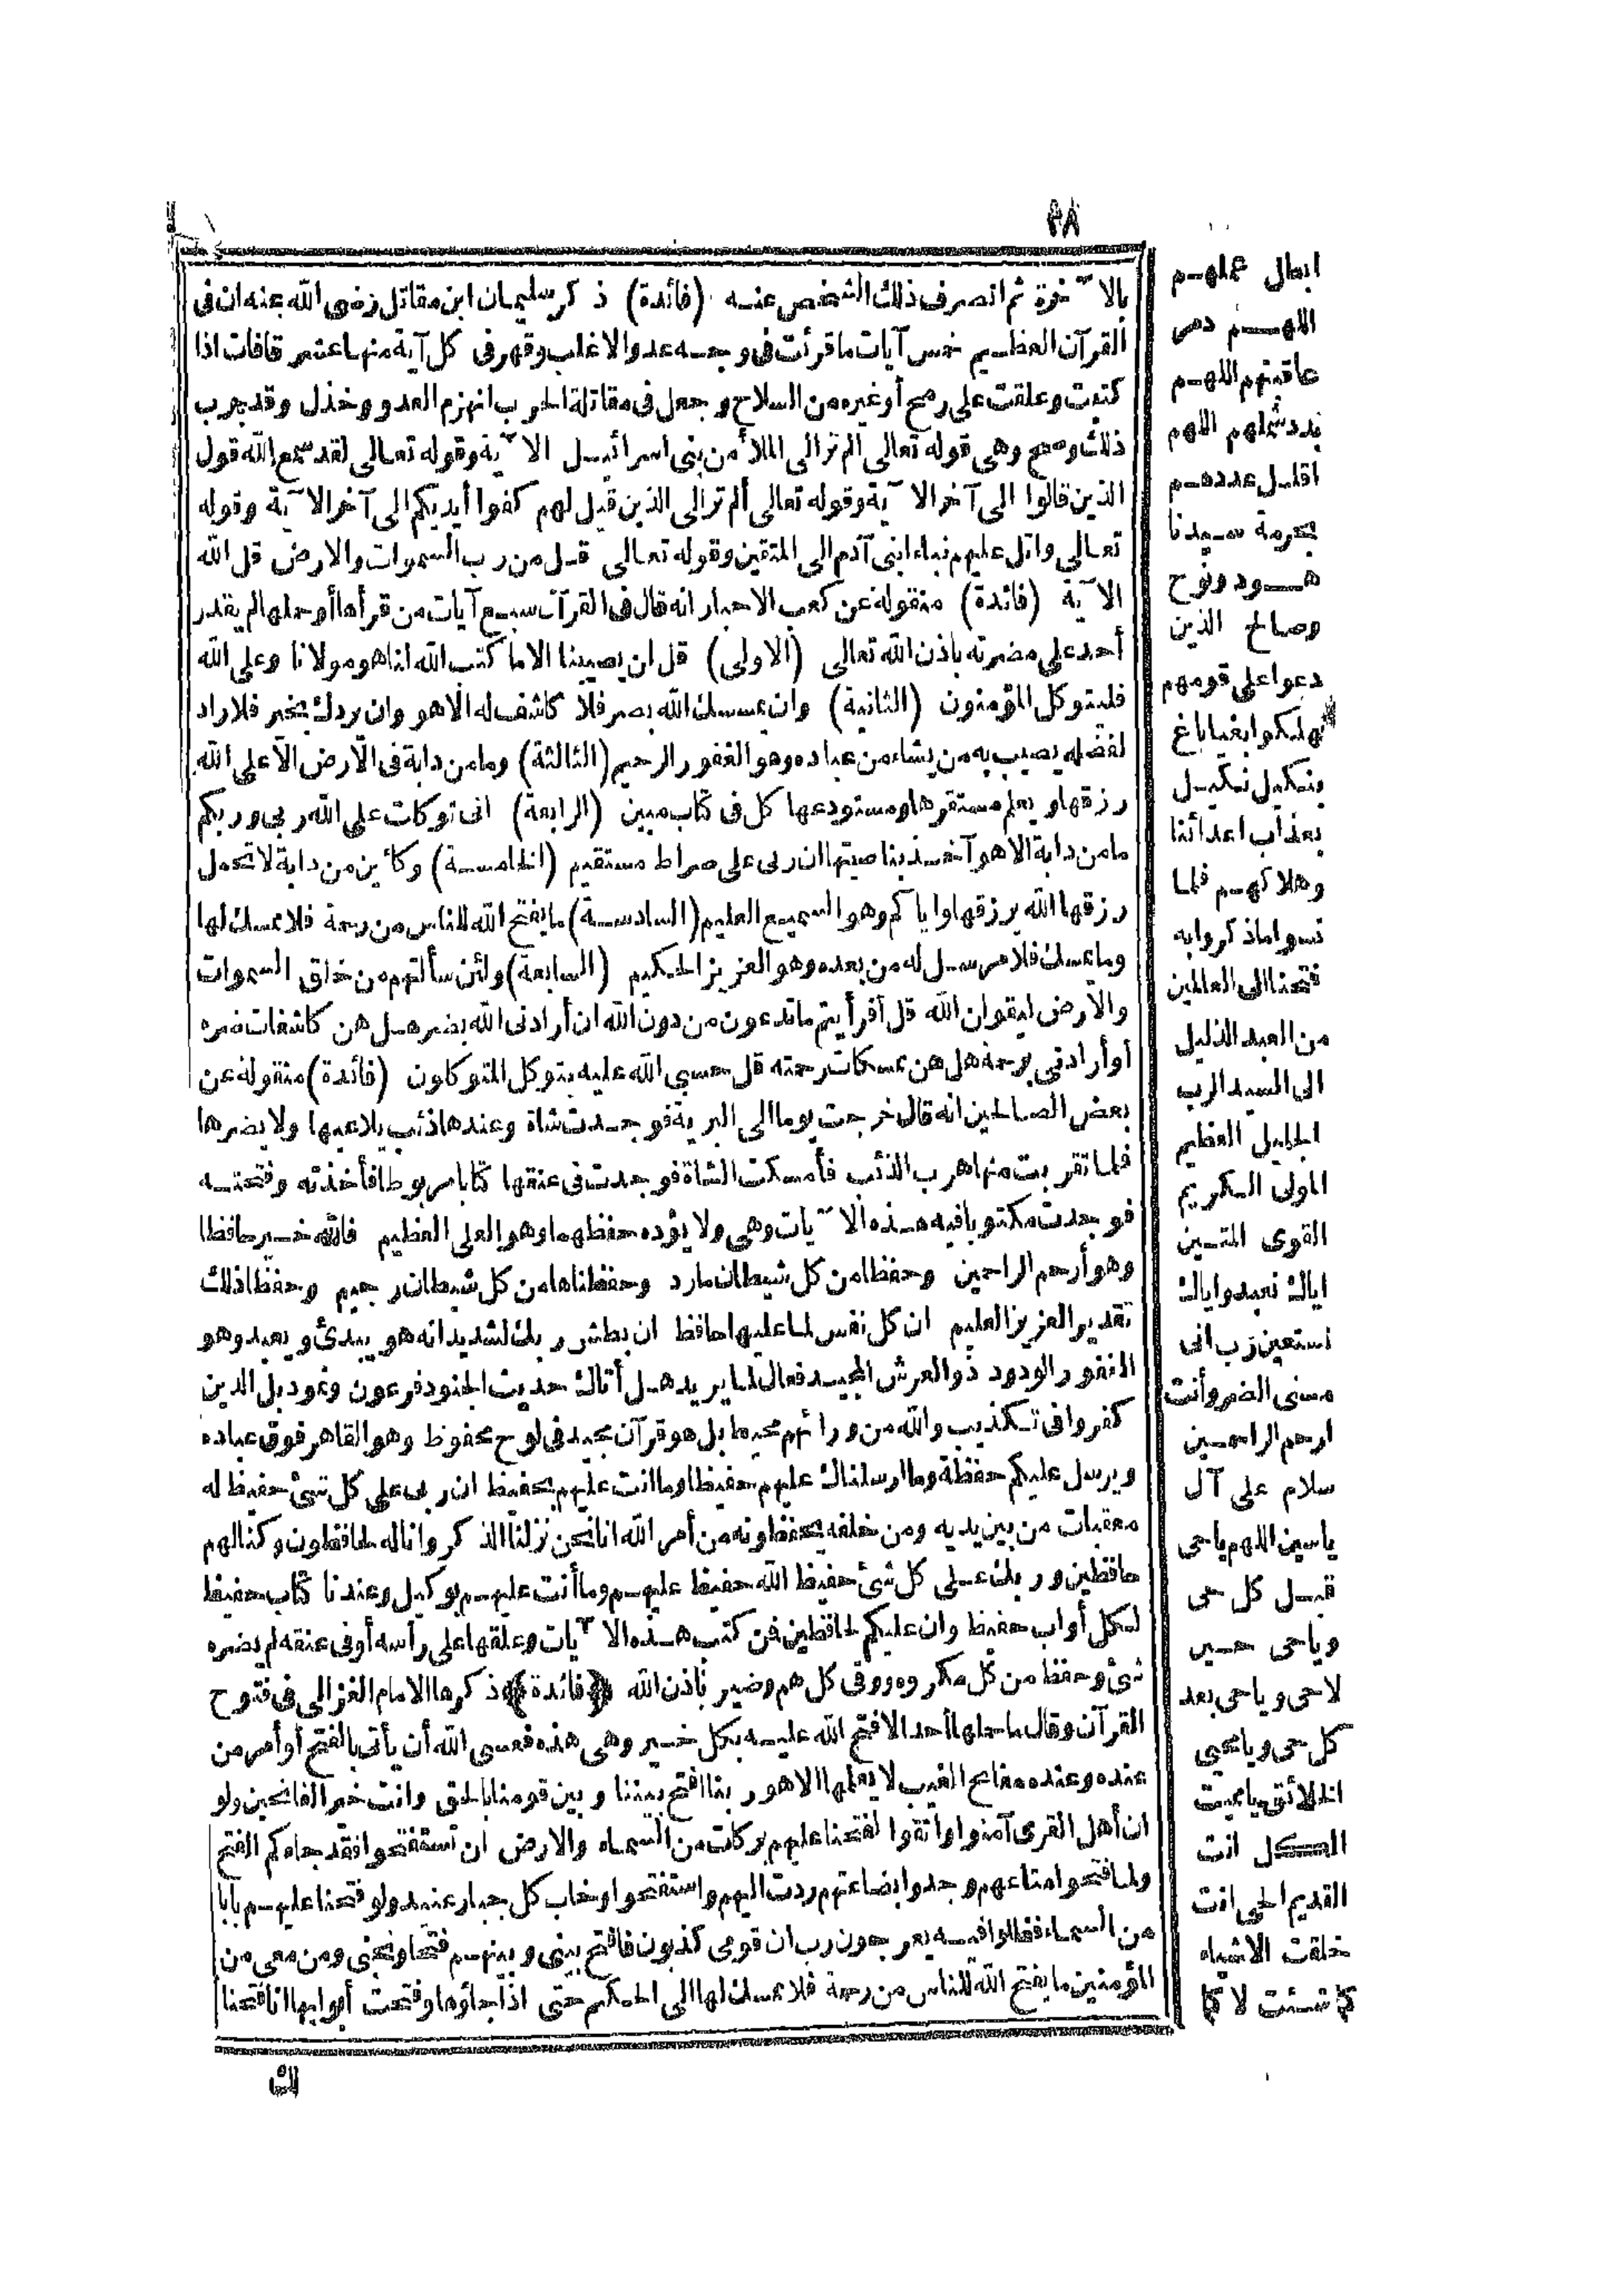 ٣٨
بالآخرة ثم انصرف ذلك الشخص عنه (فائدة) ذكر سليمان ابن مقاتل رضى الله عنه ان فى
القرآن العظيم خمس آيات ما قرئت فى وجه عدو الا غلب وقهر فى كل آية منها عشر قافات اذا
كتبت وعلقت على رمح أو غيره من السلاح وجعل فى مقاتلة الحرب انهزم العدو وخذل وقد جرب
ذلك وصح وهى قوله تعالى ألم تر الى الملأ من بنى اسرائيل الآية وقوله تعالى لقد سمع الله قول
الذين قالوا الى آخر الآية وقوله تعالى ألم تر الى الذين قيل لهم كفوا أيديكم الى آخر الآية وقوله
تعالى واتل عليهم نباء ابنى آدم الى المتقين وقوله تعالى قل من رب السموات والارض قل الله
الآية (فائدة) منقولة عن كعب الاحبار انه قال فى القرآن سبع آيات من قرأها أو حملها لم يقدر
أحد على مضرته باذن الله تعالى (الاولى) قل لن يصيبنا الا ما كتب الله لنا هو مولانا وعلى الله
فليتوكل المؤمنون (الثانية) وان يمسسك الله بضر فلا كاشف له الا هو وان يردك بخير فلا راد
لفضله يصيب به من يشاء من عباده وهو الغفور الرحيم (الثالثة) وما من دابة فى الارض الا على الله
رزقها ويعلم مستقرها ومستودعها كل فى كتاب مبين (الرابعة) انى توكلت على الله ربى وربكم
ما من دابة الا هو آخذ بناصيتها ان ربى على صراط مستقيم (الخامسة) وكأين من دابة لا تحمل
رزقها الله يرزقها واياكم وهو السميع العليم (السادسة) ما يفتح الله للناس من رحمة فلا ممسك لها
وما يمسك فلا مرسل له من بعده وهو العزيز الحكيم (السابعة) ولئن سألتهم من خلق السموات
والارض ليقولن الله قل أفرأيتم ما تدعون من دون الله ان أرادنى الله بضر هل هن كاشفات ضره
أو أرادنى برحمة هل هن ممسكات رحمته قل حسبي الله عليه يتوكل المتوكلون (فائدة) منقولة عن
بعض الصالحين انه قال خرجت يوما الى البرية فوجدت شاة وعندها ذئب يلاعبها ولا يضرها
فلما تقربت منها هرب الذئب فأمسكت الشاة فوجدت فى عنقها كتابا مربوطا فأخذته وفتحته
فوجدت مكتوبا فيه هذه الآيات وهى ولا يؤده حفظهما وهو العلى العظيم فالله خير حافظا
وهو أرحم الراحمين وحفظا من كل شيطان مارد وحفظناها من كل شيطان رجيم وحفظا ذلك
تقدير العزيز العليم ان كل نفس لما عليها حافظ ان بطش ربك لشديد انه هو يبدئ ويعيد وهو
الغفور الودود ذو العرش المجيد فعال لما يريد هل أتاك حديث الجنود فرعون وثمود بل الذين
كفروا فى تكذيب والله من ورائهم محيط بل هو قرآن مجيد فى لوح محفوظ وهو القاهر فوق عباده
ويرسل عليكم حفظة وما ارسلناك عليهم حفيظا وما انت عليهم بحفيظ ان ربى على كل شئ حفيظ له
معقبات من بين يديه ومن خلفه يحفظونه من أمر الله انا نحن نزلنا الذكر وانا له لحافظون وكنا لهم
حافظين وربك على كل شئ حفيظ الله حفيظ عليهم وما أنت عليهم بوكيل وعندنا كتاب حفيظ
لكل أواب حفيظ وان عليكم لحافظين فن كتب هذه الآيات وعلقها على رأسه أو فى عنقه لم يضره
شئ وحفظ من كل مكروه ووقى كل هم وضير باذن الله (فائدة) ذكرها الامام الغزالى فى فتوح
القرآن وقال ما حملها أحد الا فتح الله عليه بكل خير وهى هذه فعسى الله أن يأتى بالفتح أو أمر من
عنده وعنده مفاتح الغيب لا يعلمها الا هو ربنا افتح بيننا وبين قومنا بالحق وانت خير الفاتحين ولو
ان أهل القرى آمنوا واتقوا لفتحنا عليهم بركات من السماء والارض ان تستفتحوا فقد جاءكم الفتح
ولما فتحوا متاعهم وجدوا بضاعتهم ردت اليهم واستفتحوا وخاب كل جبار عنيد ولو فتحنا عليهم بابا
من السماء فظلوا فيه يعرجون رب ان قومى كذبون فافتح بينى وبينهم فتحا ونجنى ومن معى من
المؤمنين ما يفتح الله للناس من رحمة فلا ممسك لها الى الحكيم حتى اذا جاؤها وفتحت أبوابها انا فتحنا
لك
ابطل عملهم
اللهم دمر
عاقبتهم اللهم
بدد شملهم اللهم
اقلل عددهم
بحرمة سيدنا
هود ونوح
وصالح الذين
دعوا على قومهم
فهلكوا بغياباغ
بتنكيل نكيل
بعذاب اعدائنا
وهلاكهم فلما
نسوا ما ذكروا به
فتحنا الى العالمين
من العبد الذليل
الى السيد الرب
الجليل العظيم
المولى الكريم
القوى المتين
اياك نعبد واياك
نستعين رب انى
مسنى الضر وأنت
ارحم الراحمين
سلام على آل
ياسين اللهم يا حى
قبل كل حى
ويا حى حين
لا حى ويا حى بعد
كل حى ويا محيى
الخلائق يا مميت
الكل انت
القديم الحى انت
خلقت الاشياء
كما شئت لا كما